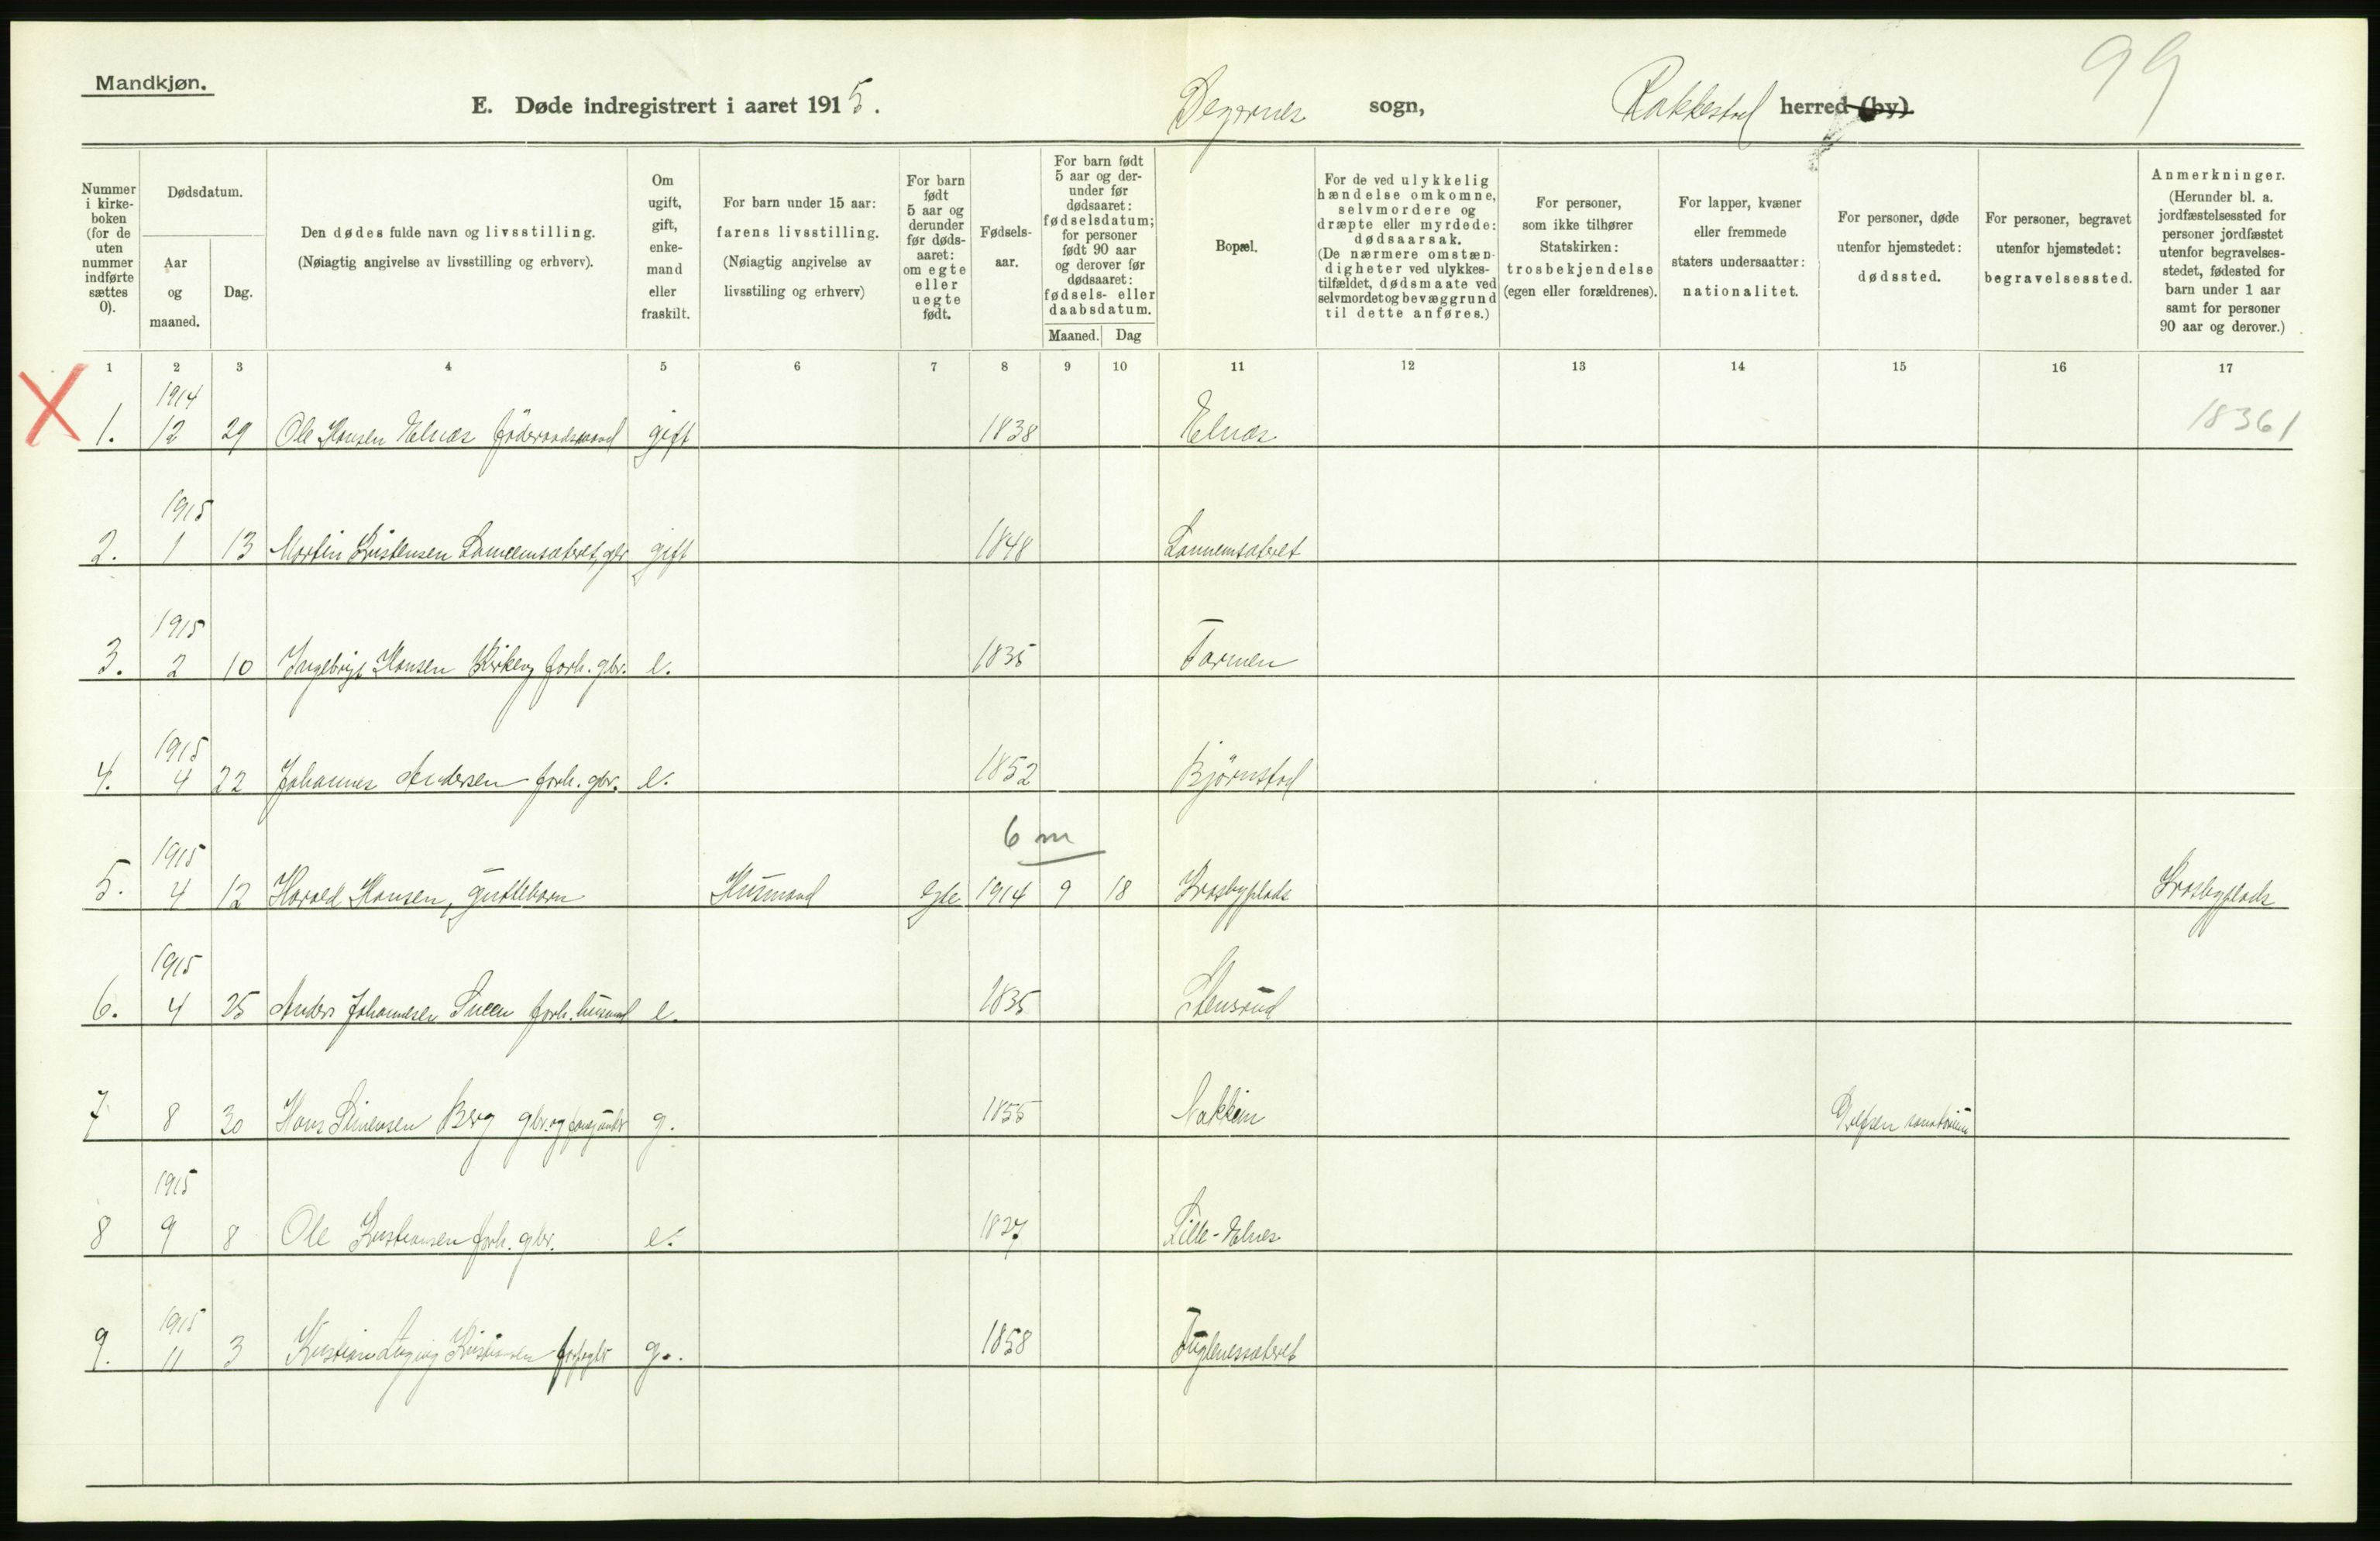 99
Mandkjøn.
E. Døde indregistrert i aaret 1915. Degernes sogn, Rakkestad herred (by).
Nummer i kirkeboken (for de uten nummer indførte sættes 0).
Dødsdatum.
Aar og maaned.
Dag.
Den dødes fulde navn og livsstilling.
(Nøiagtig angivelse av livsstilling og erhverv).
Om ugift, gift, enkemand eller fraskilt.
For barn under 15 aar: farens livsstilling.
(Nøiagtig angivelse av livsstiling og erhverv)
For barn født 5 aar og derunder før dødsaaret: om egte eller uegte født.
Fødselsaar.
For barn født 5 aar og derunder før dødsaaret: fødselsdatum; for personer født 90 aar og derover før dødsaaret: fødsels- eller daabsdatum.
Maaned. Dag
Bopæl.
For de ved ulykkelig hændelse omkomne, selvmordere og dræpte eller myrdede: dødsaarsak.
(De nærmere omstændigheter ved ulykkestilfældet, dødsmaate ved selvmordet og bevæggrund til dette anføres.)
For personer, som ikke tilhører Statskirken: trosbekjendelse (egen eller forældrenes).
For lapper, kvæner eller fremmede staters undersaatter: nationalitet.
For personer, døde utenfor hjemstedet: dødssted.
For personer, begravet utenfor hjemstedet: begravelsessted.
Anmerkninger.
(Herunder bl. a. jordfæstelsessted for personer jordfæstet utenfor begravelsesstedet, fødested for barn under 1 aar samt for personer 90 aar og derover.)
1 2 3 4 5 6 7 8 9 10 11 12 13 14 15 16 17
X
1914
1. 12 29 Ole Hansen Elnæs föderaadsmand gift 1838 Elnæs 18361
1915
2. 1 13 Martin Kristensen gbr gift 1848
1915
3. 2 10 Ingebrigt Hansen Kirkeng forh. gbr. e. 1835 Tarmen
1915
4. 4 22 Johannes Andersen forh. gbr. e. 1852 Björnstad
6 m
1915
5. 4 12 Harald Hansen, guttebarn Husmand egte 1914 9 18 Krosbyplads Krosbyplads
1915
6. 4 25 Anders Johannesen forh. husmand e. 1835 Stensrud
7 8 30 Hans Simensen Berg gbr. og g. 1855 Nakkim Grefsen sanatorium
1915
8 9 8 Ole Kristiansen forh. gbr. e. 1827 Lille-Elnes
1915
9. 11 3 Kristian Kristiansen g. 1858 Fuglenessæteret